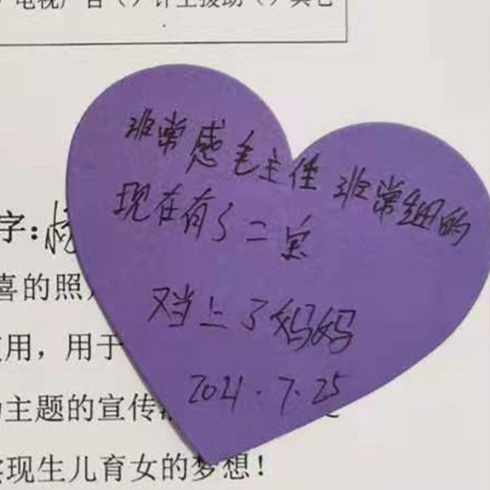 电视广告（）计生援助（）其它
非常感毛主任 非常细的
现在有了二宝
又当上了妈妈
2021.7.25
字：
喜的照
使用，用于
主题的宣传
实现生儿育女的梦想！